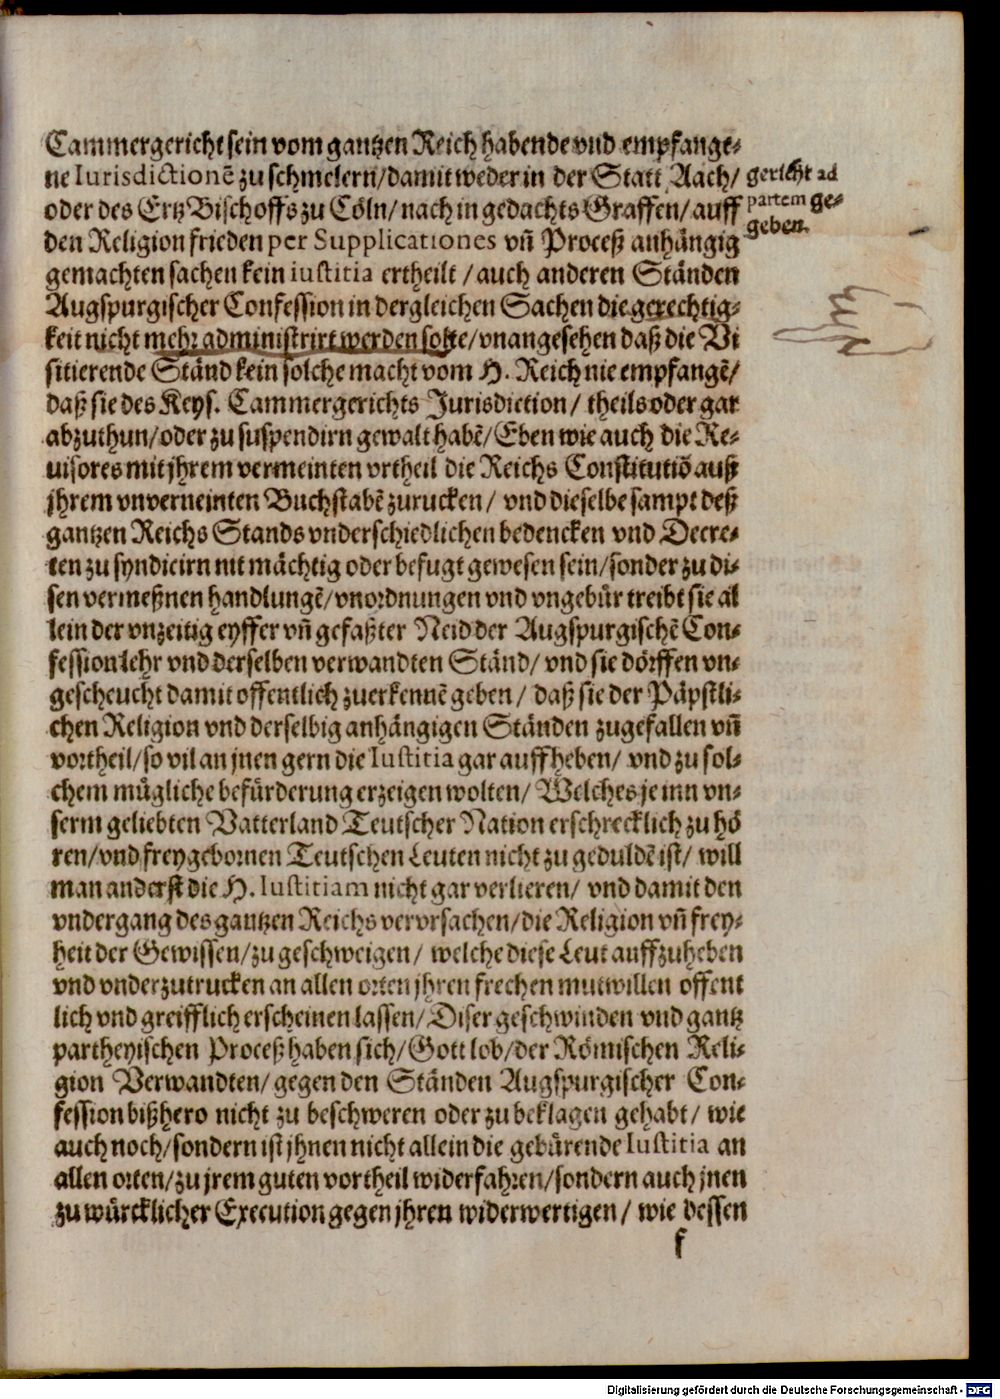 Cammergericht sein vom gantzen Reich habende vnd empfange-
ne Iurisdictionē zu schmelern/damit weder in der Statt Aach/
oder des Ertz Bischoffs zu Cöln/ nach in gedachts Graffen/ auff
den Religion frieden per Supplicationes vn̄ Proceß anhängig
gemachten sachen kein iustitia ertheilt / auch anderen Ständen
Augspurgischer Confession in dergleichen Sachen die gerechtig-
keit nicht mehr administrirt werden solte/ vnangesehen daß die Vi
sitierende Ständ kein solche macht vom H. Reich nie empfangē/
daß sie des Keys. Cammergerichts Jurisdiction / theils oder gar
abzuthun/oder zu suspendirn gewalt habē/ Eben wie auch die Re-
uisores mit jhrem vermeinten vrtheil die Reichs Constitutiō auß
jhrem vnverneinten Buchstabē zurucken / vnd dieselbe sampt deß
gantzen Reichs Stands vnderschiedlichen bedencken vnd Decre-
ten zu syndicirn nit mächtig oder befugt gewesen sein/sonder zu di-
sen vermeßnen handlungē/vnordnungen vnd vngebür treibt sie al
lein der vnzeitig eyffer vn̄ gefaßter Neid der Augspurgischē Con-
fession lehr vnd derselben verwandten Ständ/ vnd sie dörffen vn-
gescheucht damit offentlich zuerkennē geben / daß sie der Päpstli-
chen Religion vnd derselbig anhängigen Ständen zugefallen vn̄
vortheil/so vil an jnen gern die Iustitia gar auffheben/ vnd zu sol-
chem mügliche befürderung erzeigen wolten/ Welches je inn vn-
serm geliebten Vatterland Teutscher Nation erschrecklich zu hö
ren/vnd freygebornen Teutschen Leuten nicht zu geduldē ist/ will
man anderst die H. Iustitiam nicht gar verlieren/ vnd damit den
vndergang des gantzen Reichs vervrsachen/die Religion vn̄ frey-
heit der Gewissen/zu geschweigen/ welche diese Leut auffzuheben
vnd vnderzutrucken an allen orten jhren frechen mutwillen offent
lich vnd greifflich erscheinen lassen/ Diser geschwinden vnd gantz
partheyischen Proceß haben sich/Gott lob/der Römischen Reli-
gion Verwandten/ gegen den Ständen Augspurgischer Con-
fession bißhero nicht zu beschweren oder zu beklagen gehabt/ wie
auch noch/sondern ist jhnen nicht allein die gebürende Iustitia an
allen orten/zu jrem guten vortheil widerfahren/sondern auch jnen
zu würcklicher Execution gegen jhren widerwertigen / wie dessen
f
gericht ad
partem ge-
geben.
Digitalisierung gefördert durch die Deutsche Forschungsgemeinschaft - DFG